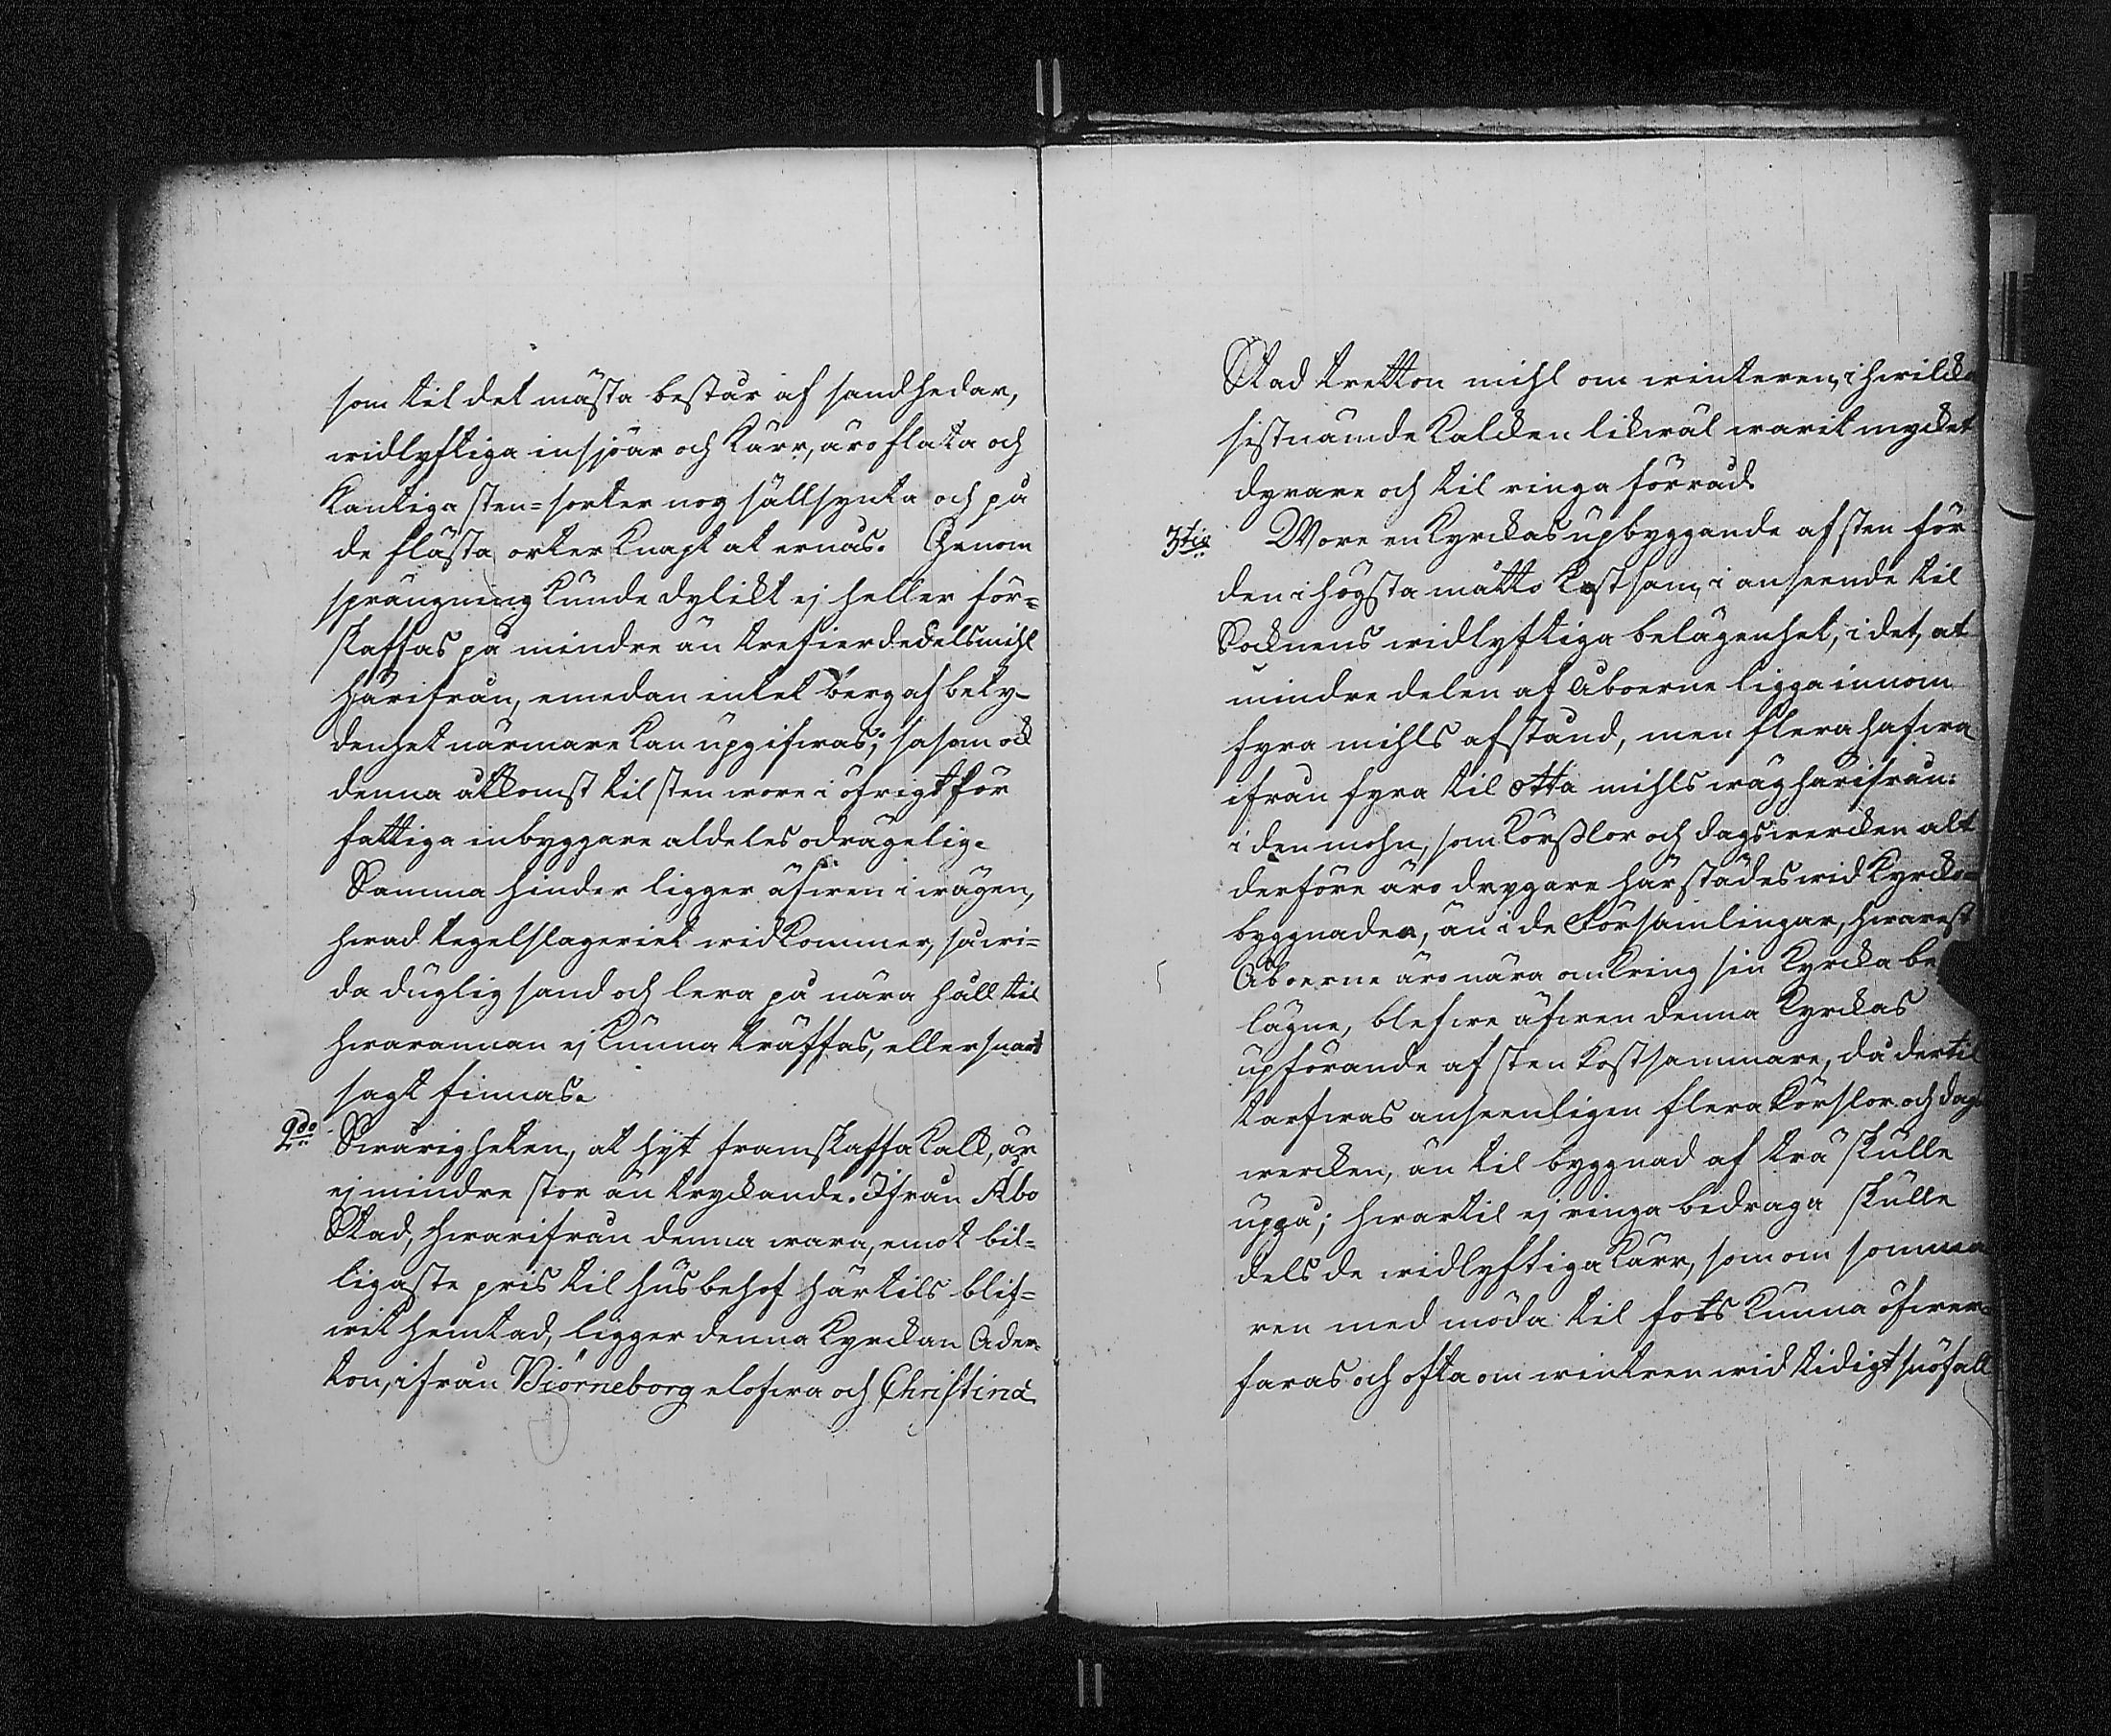 som til det mästa består af sandhedar,
widlyftiga insjöar och kärr, äro flata och
kantiga sten=sorter nog sällsynta och på
de flästa orter knapt at ernås. Genom
sprängning kunde dylikt ej heller för=
skaffas på mindre än trefierdedelsmihl
härifrån, emedan intet berg af bety-
denhet närmare kan upgifwas; såsom ock
denna åtkomst til sten wore i öfrigt för
fattiga inbyggare aldeles odrägelig.
Samma hinder ligger äfwen i wägen,
hwad tegelslageriet widkommer, såwi=
da duglig sand och lera på nära håll til
hwarannan ej kunna träffas, eller snart
sagt finnas.
2do Swårigheten, at hyt framskaffa kalk, är
ej mindre stor än tryckande. Ifrån Åbo
Stad, hwarifrån denna wara, emot bil=
ligaste pris til husbehof härtils blif=
wit hemtad, ligger denna Kyrckan Ader=
ton, ifrån Biörneborg elofwa och Christinæ
Stad tretton mihl om winteren, i hwilcka
sistnämde kalcken likwäl warit mycket
dyrare och til ringa förråd.
3tio Wore en Kyrckas upbyggande af sten för
den i högsta måtto kostsam, i anseende til
Socknens widlyftiga belägenhet, i det, at
mindre delen af Åboerne ligga innom
fyra mihls afstånd, men flera hafwa
ifrån fyra til otta mihls wäg härifrån:
i den mohn, som körßlor och dagswercken alt
derföre äro drygare här städes wid Kyrcko=
byggnaden, än i de Församlingar, hwarest
Åboerne äro nära omkring sin Kyrcka be
lägne, blefwe äfwen denna Kyrckas
upförande af sten kostsammare, då dertil
tarfwas anseenligen flera körslor och dags
wercken, än til byggnad af trä skulle
uppå; hwartil ej ringa bidraga skulle
dels de widlyftiga kärr, som om somma
ren med möda til fots kunna öfwer=
faras och ofta om wintren wid tidigt snöfall